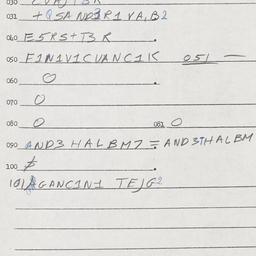 031 +QSANDIR1 VA,B2
040 E5RS+T3R.
050 F1N1V1CVANC1K 051 —
060 O.
070 O
080 O 081 O
090 AND3 HALBM7 = AND3THALBM
100
101 AGANC1N1 TEJG2